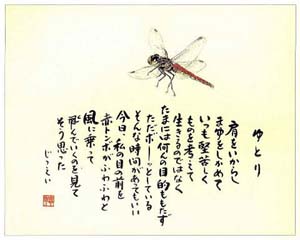 ゆとり
肩をいからし
まゆをしかめて
いつも堅苦しく
ものを考えて
生きるのではなく
たまには何んの目的ももたず
ただボーッとしている
そんな時間があってもいい
今日、私の目の前を
赤トンボがふわふわと
風に乗って
飛んでいくのを見て
そう思った
じっえい